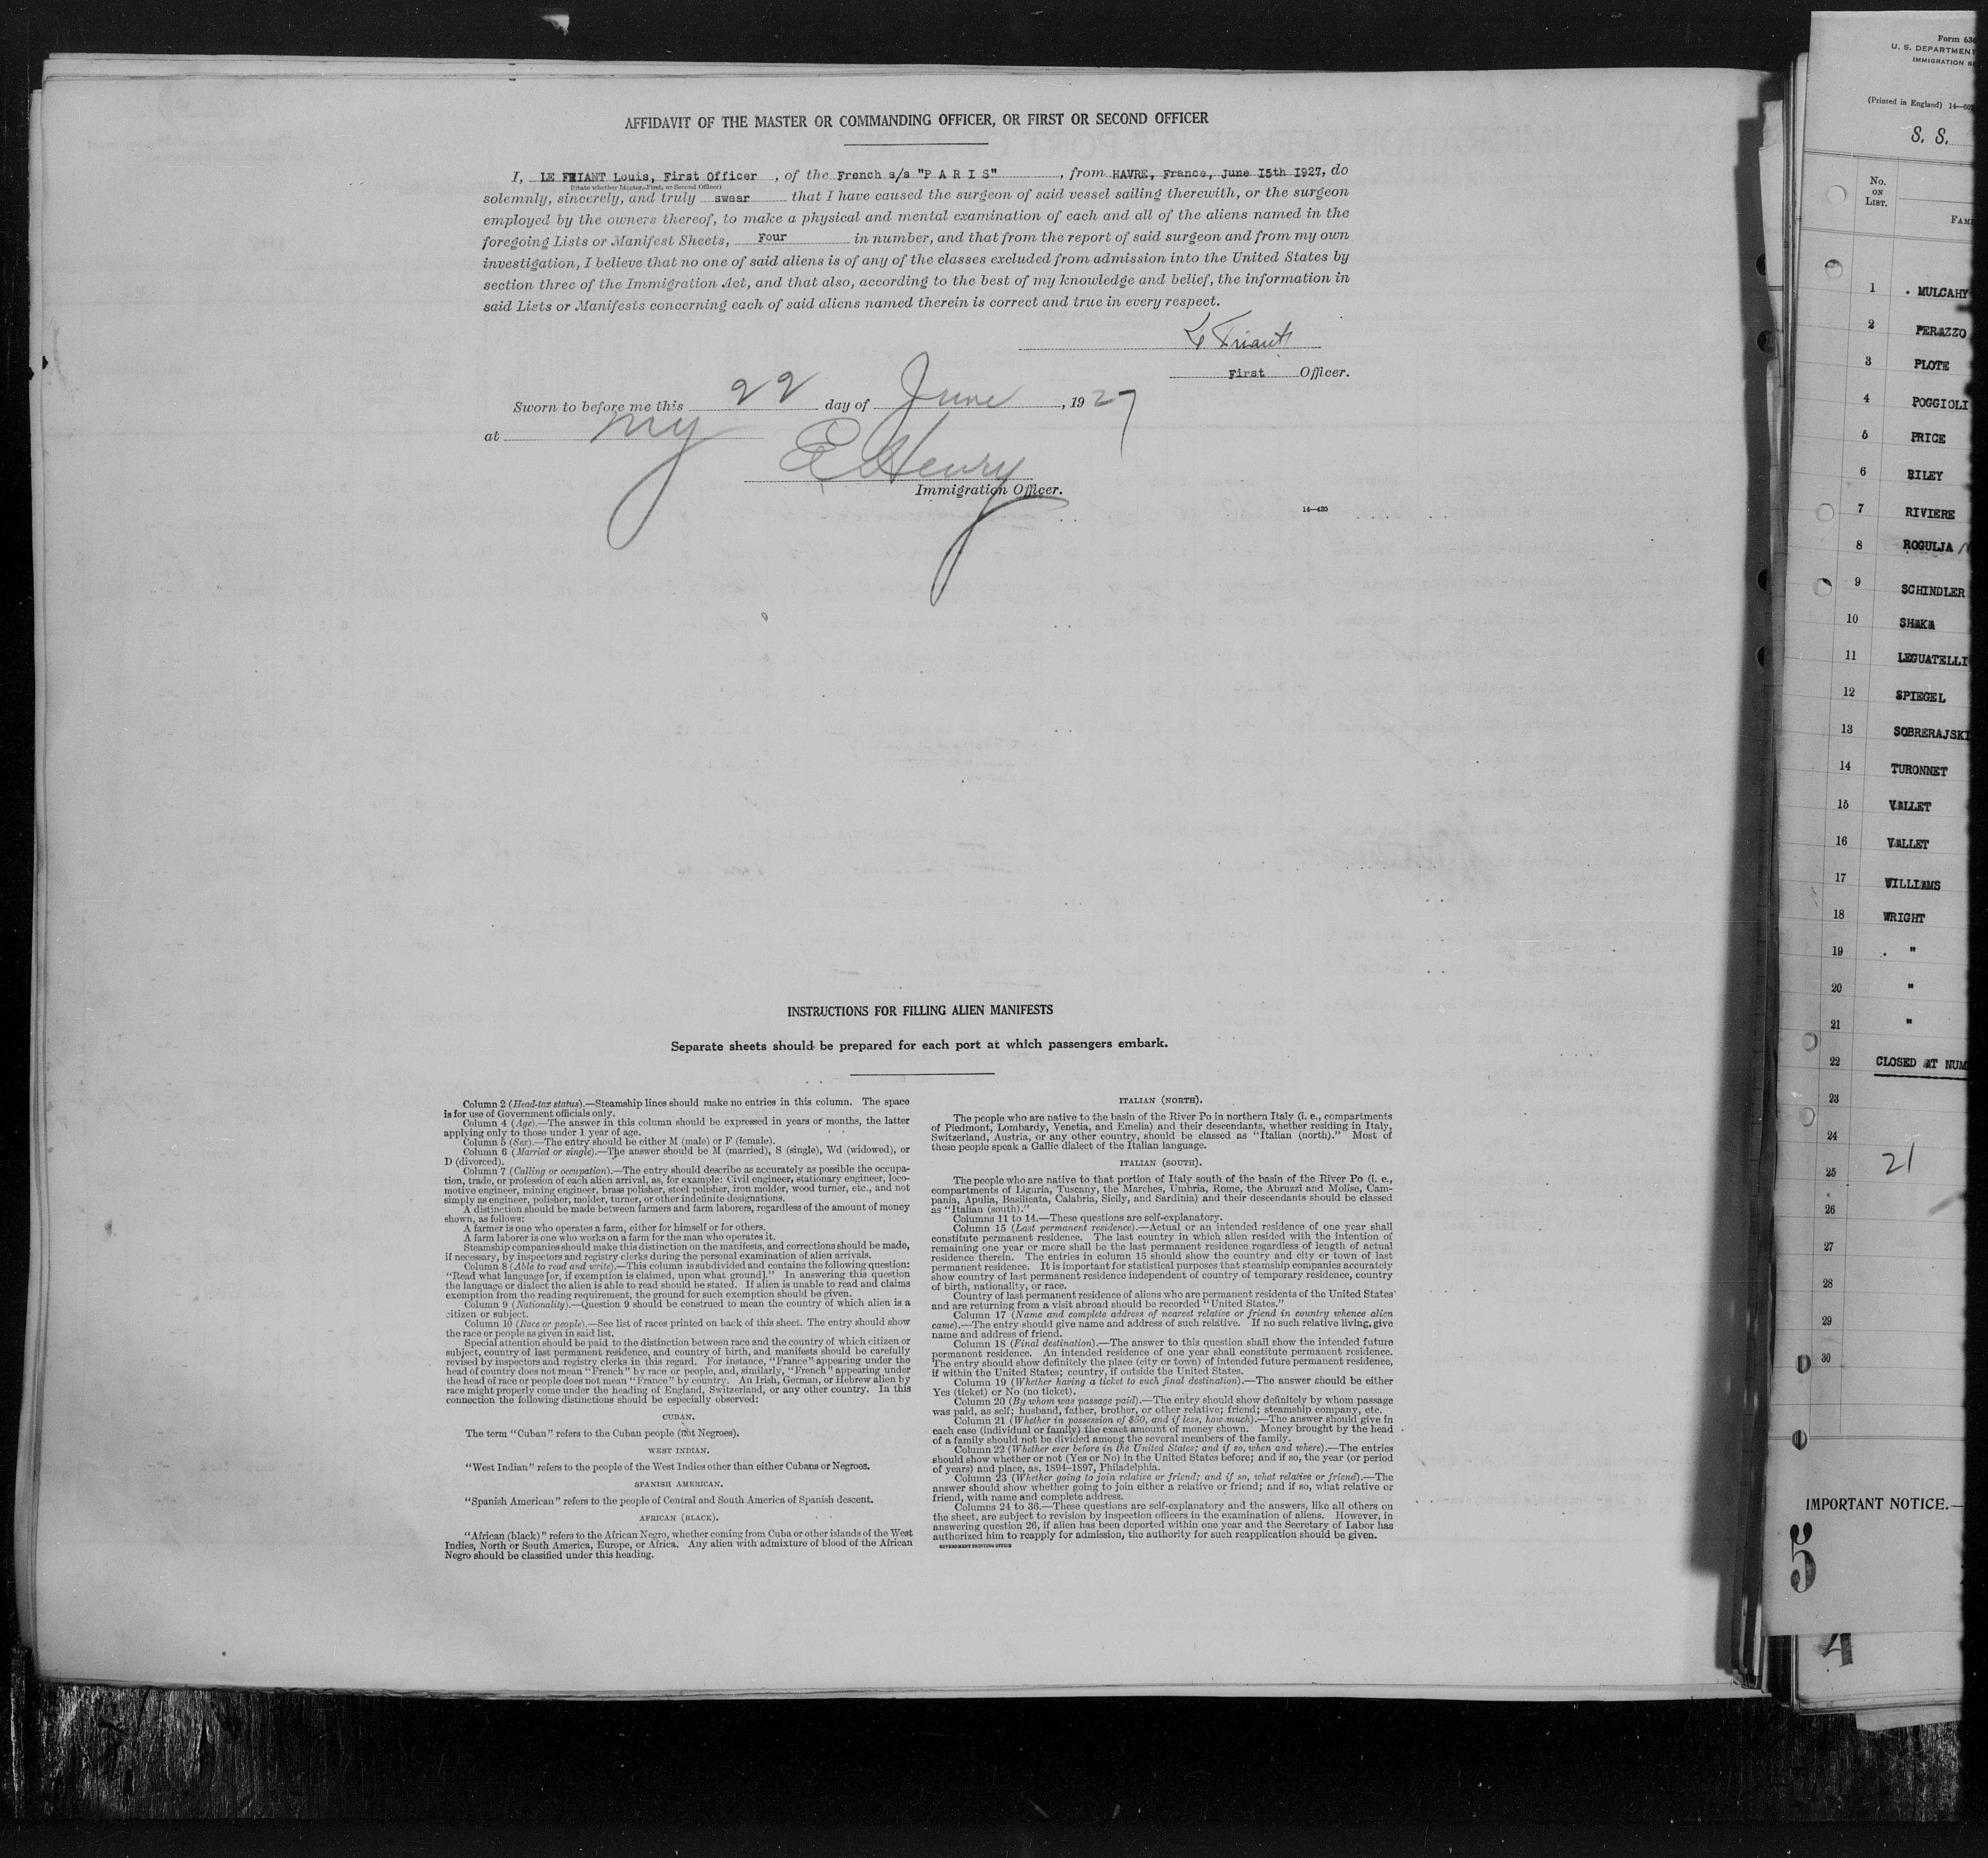 AFFIDAVIT OF THE MASTER OR COMMANDING OFFICER, OR FIRST OR SECOND OFFICER
I, LE FRIANT Louis, First Officer, of the French s/s "P A R I S", from HAVRE, France, June 15th 1927, do
(State whether Master, First, or Second Officer)
solemnly, sincerely, and truly swear that I have caused the surgeon of said vessel sailing therewith, or the surgeon
employed by the owners thereof, to make a physical and mental examination of each and all of the aliens named in the
foregoing Lists or Manifest Sheets, Four in number, and that from the report of said surgeon and from my own
investigation, I believe that no one of said aliens is of any of the classes excluded from admission into the United States by
section three of the Immigration Act, and that also, according to the best of my knowledge and belief, the information in
said Lists or Manifests concerning each of said aliens named therein is correct and true in every respect.
Le Friant
First Officer.
Sworn to before me this 22 day of June, 1927
at NY
E Henry
Immigration Officer.
14—430
INSTRUCTIONS FOR FILLING ALIEN MANIFESTS
Separate sheets should be prepared for each port at which passengers embark.
Column 2 (Head-tax status).—Steamship lines should make no entries in this column. The space
is for use of Government officials only.
Column 4 (Age).—The answer in this column should be expressed in years or months, the latter
applying only to those under 1 year of age.
Column 5 (Sex).—The entry should be either M (male) or F (female).
Column 6 (Married or single).—The answer should be M (married), S (single), Wd (widowed), or
D (divorced).
Column 7 (Calling or occupation).—The entry should describe as accurately as possible the occupa-
tion, trade, or profession of each alien arrival, as, for example: Civil engineer, stationary engineer, loco-
motive engineer, mining engineer, brass polisher, steel polisher, iron molder, wood turner, etc., and not
simply as engineer, polisher, molder, turner, or other indefinite designations.
A distinction should be made between farmers and farm laborers, regardless of the amount of money
shown, as follows:
A farmer is one who operates a farm, either for himself or for others.
A farm laborer is one who works on a farm for the man who operates it.
Steamship companies should make this distinction on the manifests, and corrections should be made,
if necessary, by inspectors and registry clerks during the personal examination of alien arrivals.
Column 8 (Able to read and write).—This column is subdivided and contains the following question:
"Read what language [or, if exemption is claimed, upon what ground]." In answering this question
the language or dialect the alien is able to read should be stated. If alien is unable to read and claims
exemption from the reading requirement, the ground for such exemption should be given.
Column 9 (Nationality).—Question 9 should be construed to mean the country of which alien is a
citizen or subject.
Column 10 (Race or people).—See list of races printed on back of this sheet. The entry should show
the race or people as given in said list.
Special attention should be paid to the distinction between race and the country of which citizen or
subject, country of last permanent residence, and country of birth, and manifests should be carefully
revised by inspectors and registry clerks in this regard. For instance, "France" appearing under the
head of country does not mean "French" by race or people, and, similarly, "French" appearing under
the head of race or people does not mean "France" by country. An Irish, German, or Hebrew alien by
race might properly come under the heading of England, Switzerland, or any other country. In this
connection the following distinctions should be especially observed:
CUBAN.
The term "Cuban" refers to the Cuban people (not Negroes).
WEST INDIAN.
"West Indian" refers to the people of the West Indies other than either Cubans or Negroes.
SPANISH AMERICAN.
"Spanish American" refers to the people of Central and South America of Spanish descent.
AFRICAN (BLACK).
"African (black)" refers to the African Negro, whether coming from Cuba or other islands of the West
Indies, North or South America, Europe, or Africa. Any alien with admixture of blood of the African
Negro should be classified under this heading.
ITALIAN (NORTH).
The people who are native to the basin of the River Po in northern Italy (i. e., compartments
of Piedmont, Lombardy, Venetia, and Emelia) and their descendants, whether residing in Italy,
Switzerland, Austria, or any other country, should be classed as "Italian (north)." Most of
these people speak a Gallic dialect of the Italian language.
ITALIAN (SOUTH).
The people who are native to that portion of Italy south of the basin of the River Po (i. e.,
compartments of Liguria, Tuscany, the Marches, Umbria, Rome, the Abruzzi and Molise, Cam-
pania, Apulia, Basilicata, Calabria, Sicily, and Sardinia) and their descendants should be classed
as "Italian (south)."
Columns 11 to 14.—These questions are self-explanatory.
Column 15 (Last permanent residence).—Actual or an intended residence of one year shall
constitute permanent residence. The last country in which alien resided with the intention of
remaining one year or more shall be the last permanent residence regardless of length of actual
residence therein. The entries in column 15 should show the country and city or town of last
permanent residence. It is important for statistical purposes that steamship companies accurately
show country of last permanent residence independent of country of temporary residence, country
of birth, nationality, or race.
Country of last permanent residence of aliens who are permanent residents of the United States
and are returning from a visit abroad should be recorded "United States."
Column 17 (Name and complete address of nearest relative or friend in country whence alien
came).—The entry should give name and address of such relative. If no such relative living, give
name and address of friend.
Column 18 (Final destination).—The answer to this question shall show the intended future
permanent residence. An intended residence of one year shall constitute permanent residence.
The entry should show definitely the place (city or town) of intended future permanent residence,
if within the United States; country, if outside the United States.
Column 19 (Whether having a ticket to such final destination).—The answer should be either
Yes (ticket) or No (no ticket).
Column 20 (By whom was passage paid).—The entry should show definitely by whom passage
was paid, as self; husband, father, brother, or other relative; friend; steamship company, etc.
Column 21 (Whether in possession of $50, and if less, how much).—The answer should give in
each case (individual or family) the exact amount of money shown. Money brought by the head
of a family should not be divided among the several members of the family.
Column 22 (Whether ever before in the United States; and if so, when and where).—The entries
should show whether or not (Yes or No) in the United States before; and if so, the year (or period
of years) and place, as, 1894–1897, Philadelphia.
Column 23 (Whether going to join relative or friend; and if so, what relative or friend).—The
answer should show whether going to join either a relative or friend; and if so, what relative or
friend, with name and complete address.
Columns 24 to 36.—These questions are self-explanatory and the answers, like all others on
the sheet, are subject to revision by inspection officers in the examination of aliens. However, in
answering question 26, if alien has been deported within one year and the Secretary of Labor has
authorized him to reapply for admission, the authority for such reapplication should be given.
GOVERNMENT PRINTING OFFICE
Form 63
U. S. DEPARTMENT
IMMIGRATION
(Printed in England) 14—
S. S.
No. ON LIST.
FAM
1 MULCAHY
2 PERAZZO
3 PLOTE
4 POGGIOLI
5 PRICE
6 RILEY
7 RIVIERE
8 ROGULJA
9 SCHINDLER
10 SHAKA
11 LEGUATELLI
12 SPIEGEL
13 SOBRERAJSKI
14 TURONNET
15 VALLET
16 VALLET
17 WILLIAMS
18 WRIGHT
19 "
20 "
21 "
22 CLOSED AT NUM
23
24
25 21
26
27
28
29
30
IMPORTANT NOTICE.—
5
4